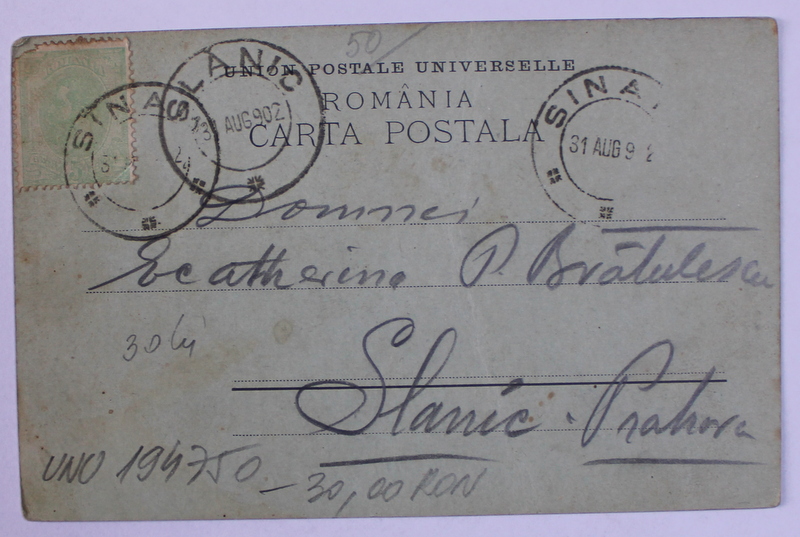 50
UNION POSTALE UNIVERSELLE
ROMÂNIA
CARTA POSTALA
SLANIC
AUG 902
SINA
SINA
31 AUG 9 2
Domnei
Ecatherina P. Brătulescu
30 lei
Slanic - Prahova
UNO 194750
- 30,00 RON